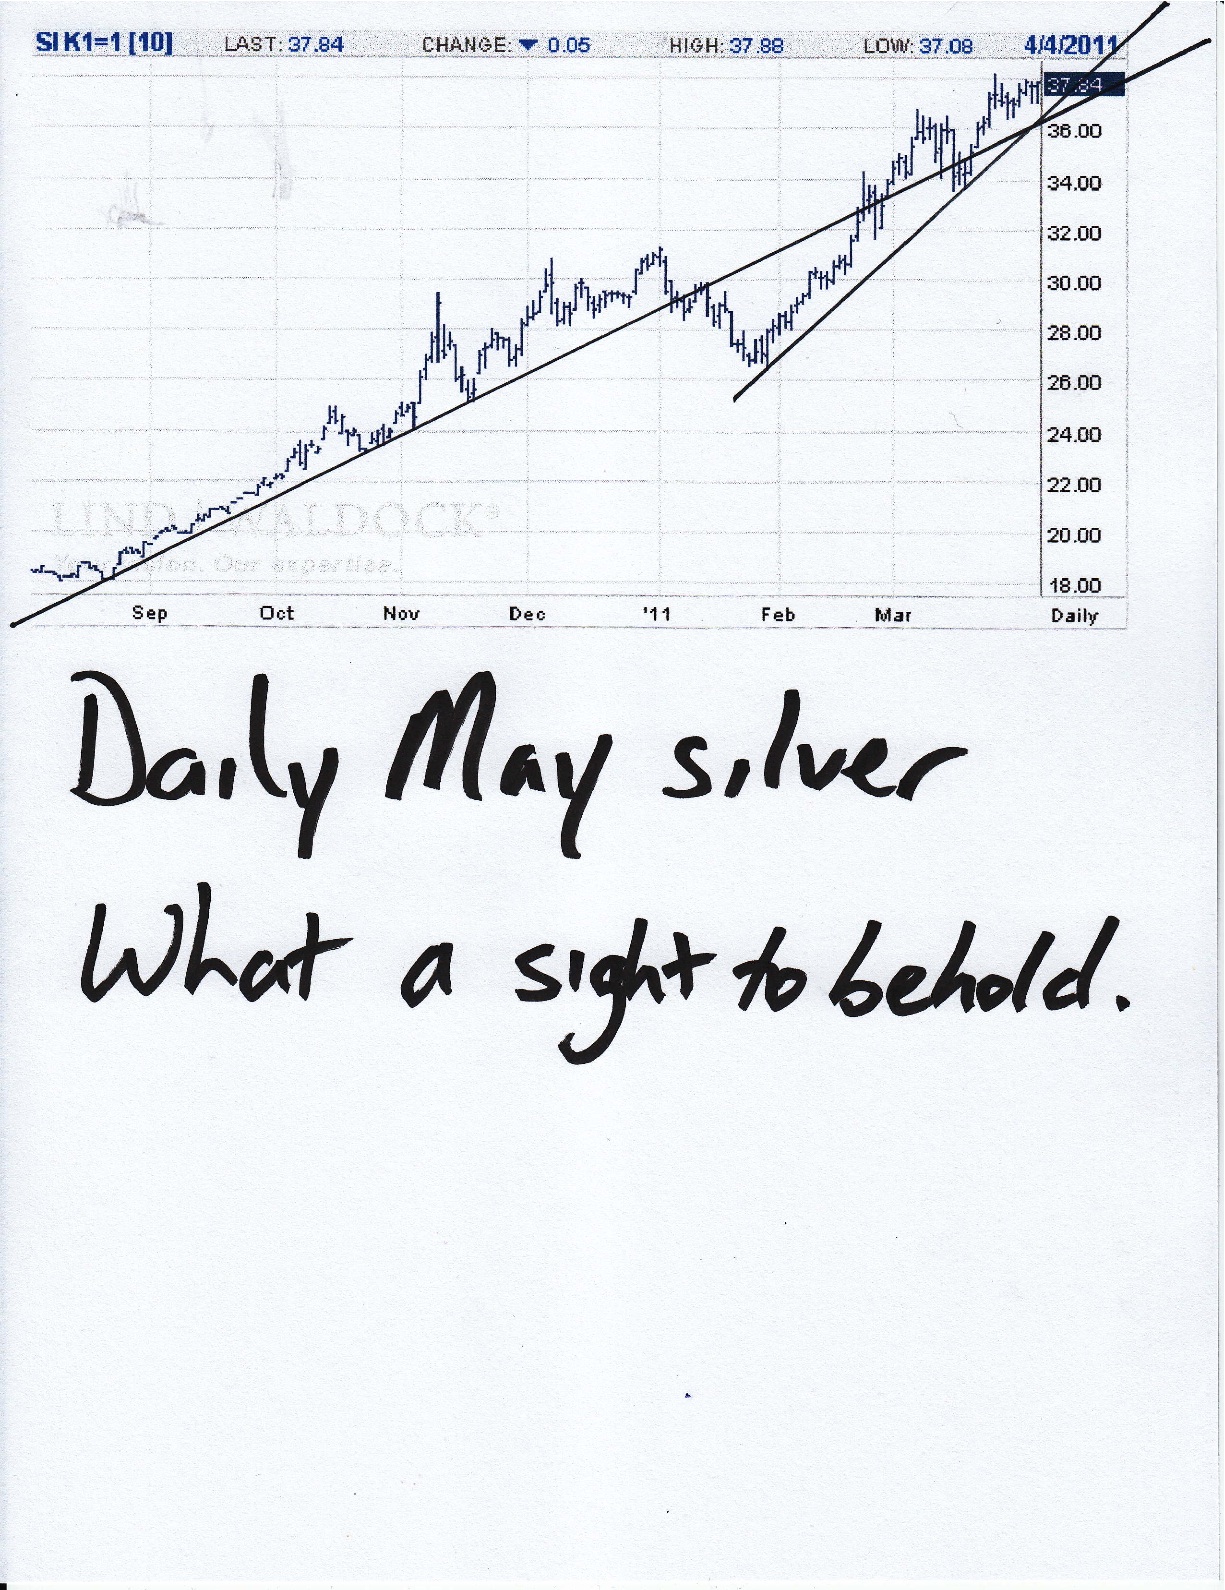 SI K1=1 [10] LAST: 37.84 CHANGE: ▼ 0.05 HIGH: 37.88 LOW: 37.08 4/4/2011
37.84
36.00
34.00
32.00
30.00
28.00
26.00
24.00
22.00
20.00
18.00
LIND WALDOCK®
Our expertise.
Sep Oct Nov Dec '11 Feb Mar Daily
Daily May silver
What a sight to behold.